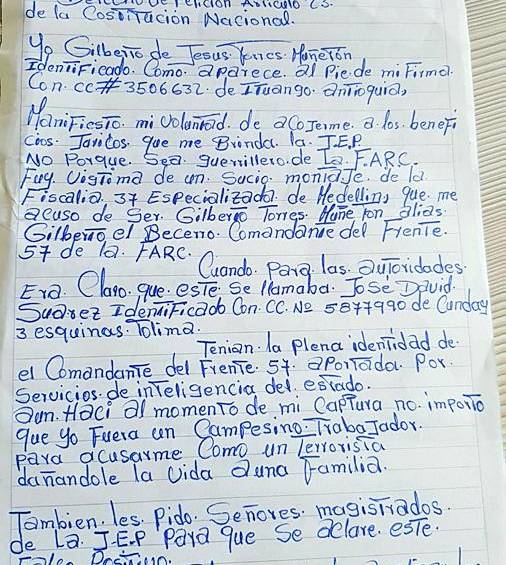 Derecho de Petición Articulo 23.
de la Costitucion Nacional.
Yo Gilberto de Jesus Torres Muneton
Identificado. Como. aparece. al Pie de mi Firma.
Con. cc# 3506632. de Ituango. antioquia,
Manifiesto. mi voluntad. de acojerme. a. los. benefi
cios. Jaritos. que me Brinda. la. J.E.P.
No Porque. Sea. guerrillero. de La. FARC.
Fuy. Vistima de un. Sucio. montaje. de la
Fiscalia. 37 Especializada. de Medellin, que. me
acuso de Ser. Gilberto Torres. Muneton alias.
Gilberto el Becerro. Comandante del Frente.
57 de la. FARC.
Cuando. Para. las. autoridades.
Era. Claro. que. este Se llamaba. Jose David.
Suarez Identificado Con. CC. No 5877990 de Cunday
3 esquinas. Tolima.
Tenian. la Plena identidad de.
el Comandante del Frente 57. aportada. Por.
Servicios. de inteligencia del. estado.
aun. Haci al momento de. mi Captura no. importo
que yo Fuera un Campesino. Trabajador.
Para acusarme Como un Terrorista
dañandole la vida auna Familia.
Tambien. les. Pido. Señores. magistrados.
de La. J.E.P Para que Se aclare. este.
Falso Positivo.